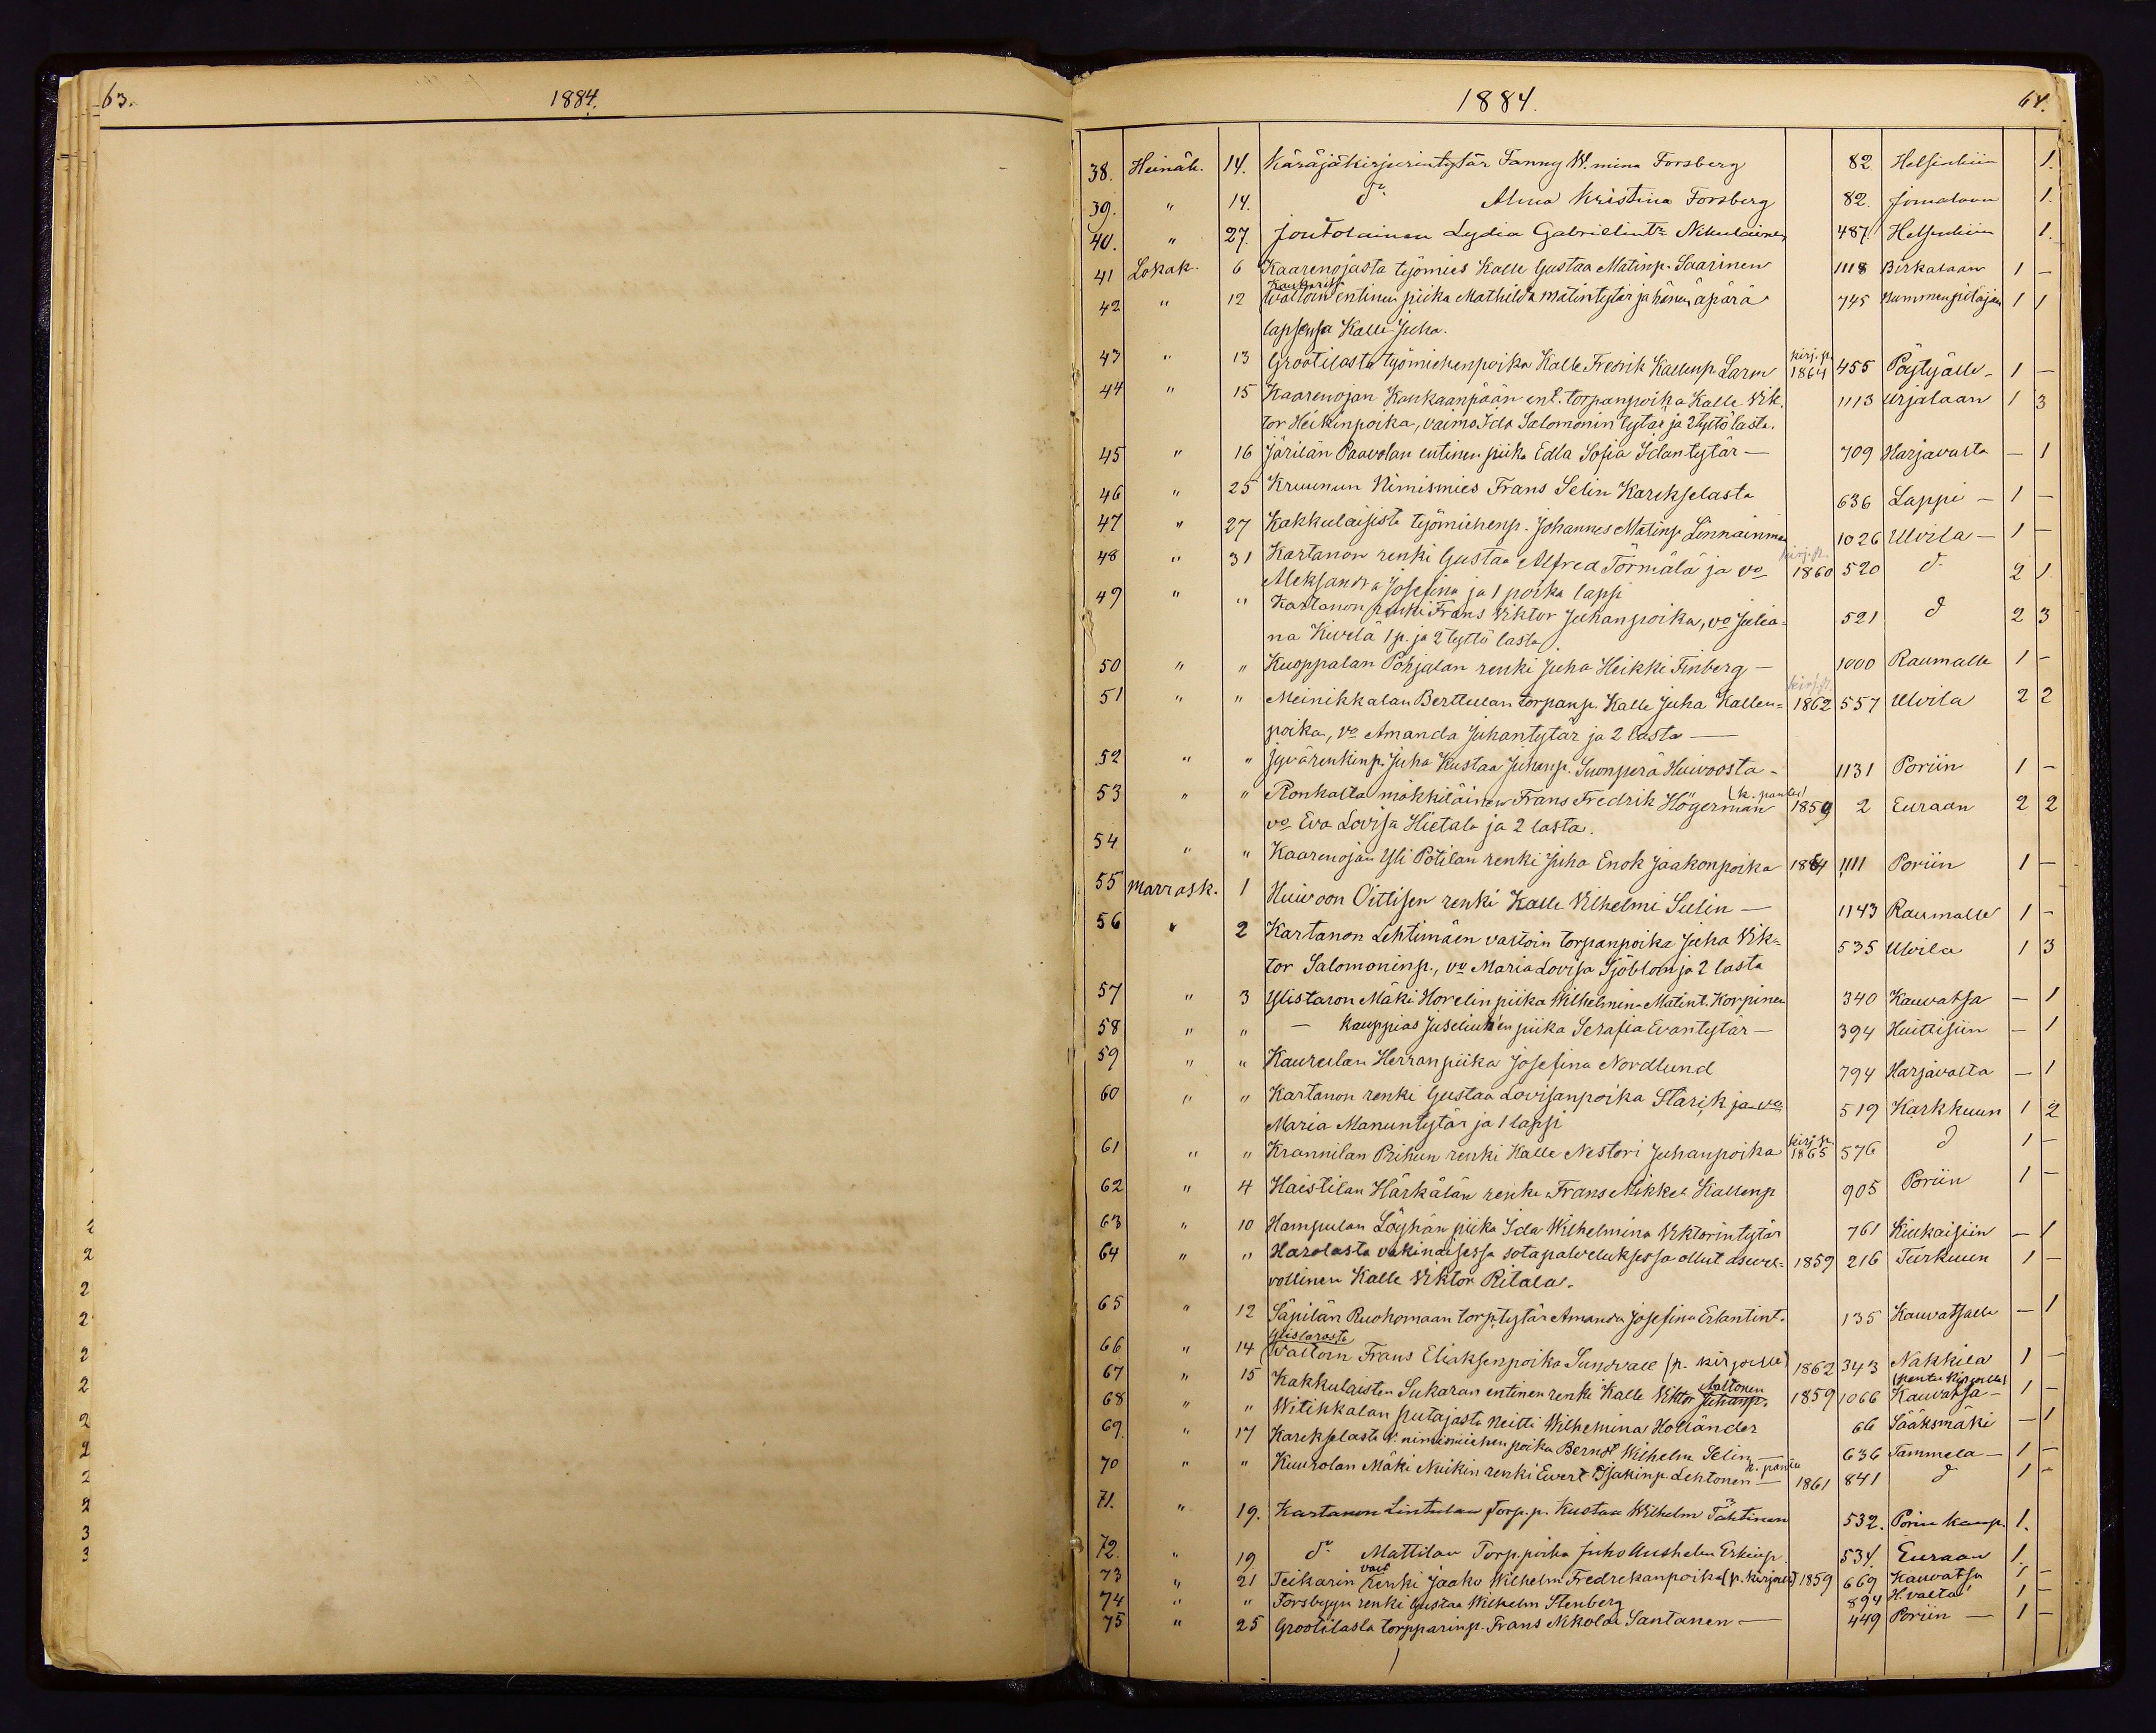 63.
1884.
1884.
64.
38. Heinäk. 14. Käräjäkirjurintytär Fanny W.mina Forsberg 82 Helsinkiin 1.
39. " 14. do Alma Kristina Forsberg 82. Jomalaan 1.
40. " 27. Joutolainen Lydia Gabrielintr Nikulainen 487. Helsinkiin 1.
41 Lokak. 6 Kaarenojasta työmies Kalle Gustaa Matinp. Saarinen 1118 Birkalaan 1 —
42 " 12 entinen piika Mathilda Matintytär ja hänen äpärä 745 Nummenpitäjään 1 1
lapsensa Kalle Juha.
kirj. p.
43 " 13 Grootilasta työmiehenpoika Kalle Fredrik Kallenp. Larm 1864 455 Pöytyälle - 1 —
44 " 15 Kaarenojan Kaukaanpään ent. torpanpoika Kalle Vik. 1113 Urjalaan 1 3
tor Heikinpoika, vaimo Ida Salomonin tytär ja 2 tyttö lasta.
45 " 16 Järilän Paavolan entinen piika Edla Sofia Idantytär — 709 Harjavalta — 1
46 " 25 Kruunun Nimismies Frans Selin Karekselasta 636 Lappi - 1 —
47 " 27 Kakkulaisista työmiehenp. Johannes Matinp. Linnainmaa 1026 Ulvila — 1 —
kirj. p.
48 " 31 Kartanon renki Gustaa Alfred Törmälä ja vo 1860 520 d- 2 1
Aleksandra Josefina ja 1 poika lapsi
49 " " Kartanon renki Frans Viktor Juhanpoika, vo Julia= 521 d 2 3
na Kivelä 1 p. ja 2 tyttö lasta
50 " " Kuoppalan Pohjalan renki Juha Heikki Finberg — 1000 Raumalle 1 -
kirj. p.
51 " " Meinikkalan Berttulan torpanp. Kalle Juha Kallen= 1862 557 Ulvila 2 2
poika, vo Amanda Juhantytär ja 2 lasta —
52 " " Jyvärenkinp. Juha Kustaa Juhanp. Suonperä Huivoosta - 1131 Poriin 1 -
53 " " Ronkalta mökkiläinen Frans Fredrik Högerman 1859 2 Euraan 2 2
vo Eva Lovisa Hietala ja 2 lasta.
54 " " Kaarenojan Yli Potilan renki Juha Enok Jaakonpoika 1864 1111 Poriin 1 —
55 Marrask. 1 Huivoon Oittisen renki Kalle Vilhelmi Sulin — 1143 Raumalle 1 -
56 " 2 Kartanon Lehtimäen vastoin torpanpoika Juha Vik= 535 Ulvila 1 3
tor Salomoninp., vo Maria Lovisa Sjöblom ja 2 lasta
57 " 3 Ylistaron Mäki Horelin piika Wilhelmina Matint. Korpinen 340 Kauvatsa — 1
58 " " — kauppias Juseliuksen piika Serafia Evantytär — 394 Huittisiin — 1
59 " " Kaurulan Herran piika Josefina Nordlund 794 Harjavalta — 1
60 " " Kartanon renki Gustaa Lovisanpoika Starik ja vo 519 Karkkuun 1 2
Maria Manuntytär ja 1 lapsi
kirj. p.
61 " " Krannilan Prihun renki Kalle Nestori Juhanpoika 1865 576 d 1 -
62 " 4 Haistilan Härkälän renki Frans Mikkel Kallenp 905 Poriin 1 -
63 " 10 Hampulan Löyhän piika Ida Wilhelmina Viktorintytär 761 Kiukaisiin — 1
64 " " Harolasta vakinaisessa sotapalveluksessa ollut asevel= 1859 216 Turkuun 1 -
vollinen Kalle Viktor Ritala.
65 " 12 Säpilän Ruohomaan torp.tytär Amanda Josefina Erlantint. 135 Kauvatsalle — 1
Ylistarosta
66 " 14 Vastoin Frans Eliaksenpoika Sundvall (p. kirjoilla) 1862 343 Nakkila 1 -
Aaltonen
67 " 15 Kakkulaisten Sukaran entinen renki Kalle Viktor Juhanp. 1859 1066 Kauvatsa - 1 -
68 " " Witikkalan Putajasta Neitti Wilhelmina Holländer 66 Sääksmäki — 1
69. " 17 Karekselasta v. nimismiehen poika Berndt Wilhelm Selin — 636 Tammela — 1 -
70 " " Kuurolan Mäki Nuikin renki Evert Isakinp. Lehtonen — 1861 841 d 1 -
71. " 19. Kartanon Lintulan Torp.p. Kustaa Wilhelm Tähtinen 532. Porin kaup. 1.
72. " 19 do Mattilan Torp.poika Juho Anshelm Erkinp. 534. Euraan 1.
vast
73 " 21 Teikarin Renki Jaako Wilhelm Fredrekanpoika (p. kirjoilla) 1859 669 Kauvatsa 1 -
74 " " Forsbyyn renki Gustaa Wilhelm Stenberg 894 H.valta 1 -
75 " 25 Grootilasta torpparinp. Frans Nikolai Santanen — 449 Poriin — 1 -
2
2
2
2
2
2
2
2
2
2
3
3